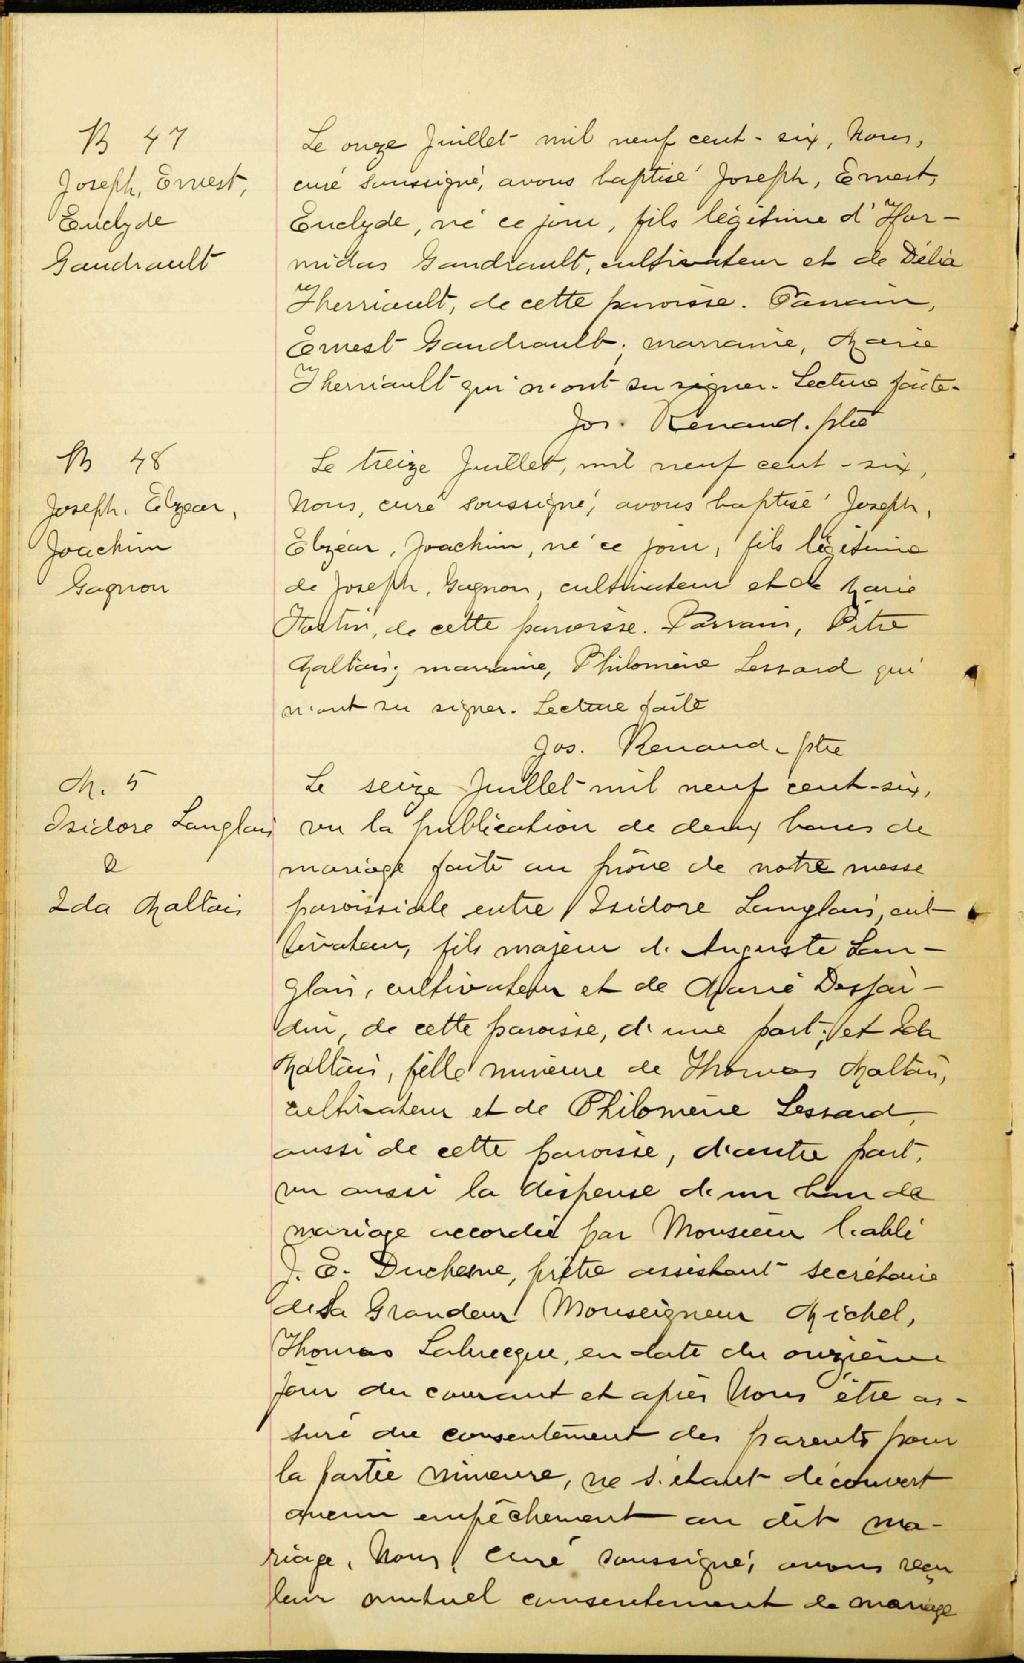 B 47
Joseph, Ernest,
Euclyde
Gaudrault
Le onze Juillet mil neuf cent-six, Nous,
curé soussigné, avons baptisé Joseph, Ernest,
Euclyde, né ce jour, fils légitime d'Hor-
midas Gaudrault, cultivateur et de Délia
Therriault, de cette paroisse. Parrain,
Ernest Gaudrault; marraine, Marie
Therriault qui n'ont su signer. Lecture faite.
Jos. Renaud. ptre
B 48
Joseph, Elzéar,
Joachim
Gagnon
Le treize Juillet, mil neuf cent-six,
Nous, curé soussigné, avons baptisé Joseph,
Elzéar, Joachim, né ce jour, fils légitime
de Joseph, Gagnon, cultivateur et de Marie
Fortin, de cette paroisse. Parrain, Pitre
Maltais; marraine, Philomène Lessard qui
n'ont su signer. Lecture faite
Jos. Renaud. ptre
M. 5
Isidore Langlais
&
Ida Maltais
Le seize Juillet mil neuf cent-six,
vu la publication de deux bans de
mariage faite au prône de notre messe
paroissiale entre Isidore Langlais, cul
tivateur, fils majeur d'Auguste Lan-
glais, cultivateur et de Marie Desjar-
din, de cette paroisse, d'une part; et Ida
Maltais, fille mineure de Thomas Maltais,
cultivateur et de Philomène Lessard,
aussi de cette paroisse, d'autre part,
vu aussi la dispense d'un ban de
mariage accordée par Monsieur l'abbé
J. E. Duchesne, prêtre assistant secrétaire
de Sa Grandeur Monseigneur Michel,
Thomas Labrecque, en date du onzième
jour du courant et après Nous être as-
suré du consentement des parents pour
la partie mineure, ne s'étant découvert
aucun empêchement au dit ma-
riage, Nous, curé soussigné, avons reçu
leur mutuel consentement de mariage